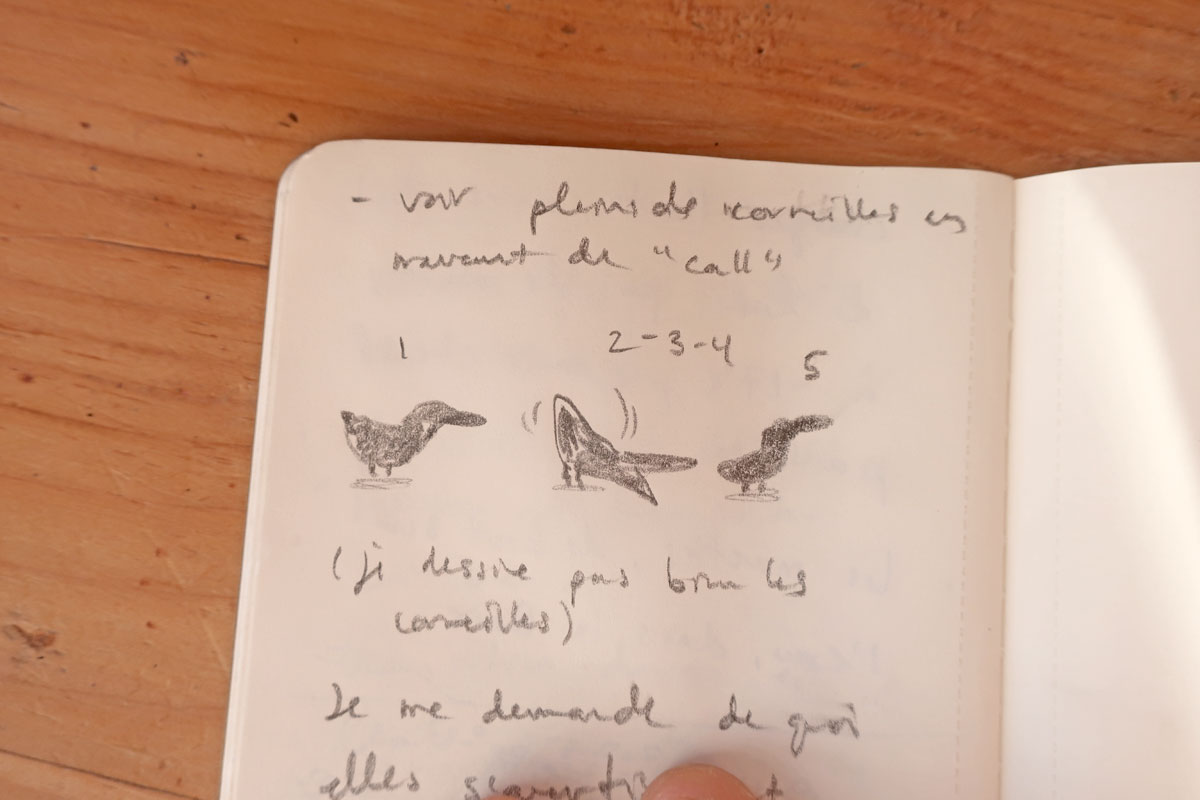 - voir pleins de corneilles en
mouvement de "call"
1 2-3-4 5
(je dessine pas bien les
corneilles)
Je me demande de quoi
elles